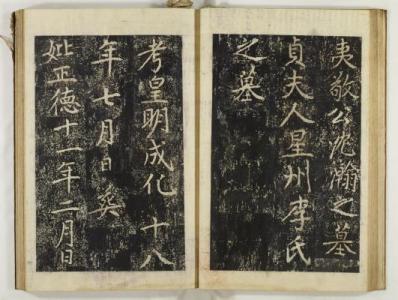 夷敬公沈瀚之墓
貞夫人星州李氏
之墓
考皇明成化十八
年七月日葬
妣正德十一年二月日